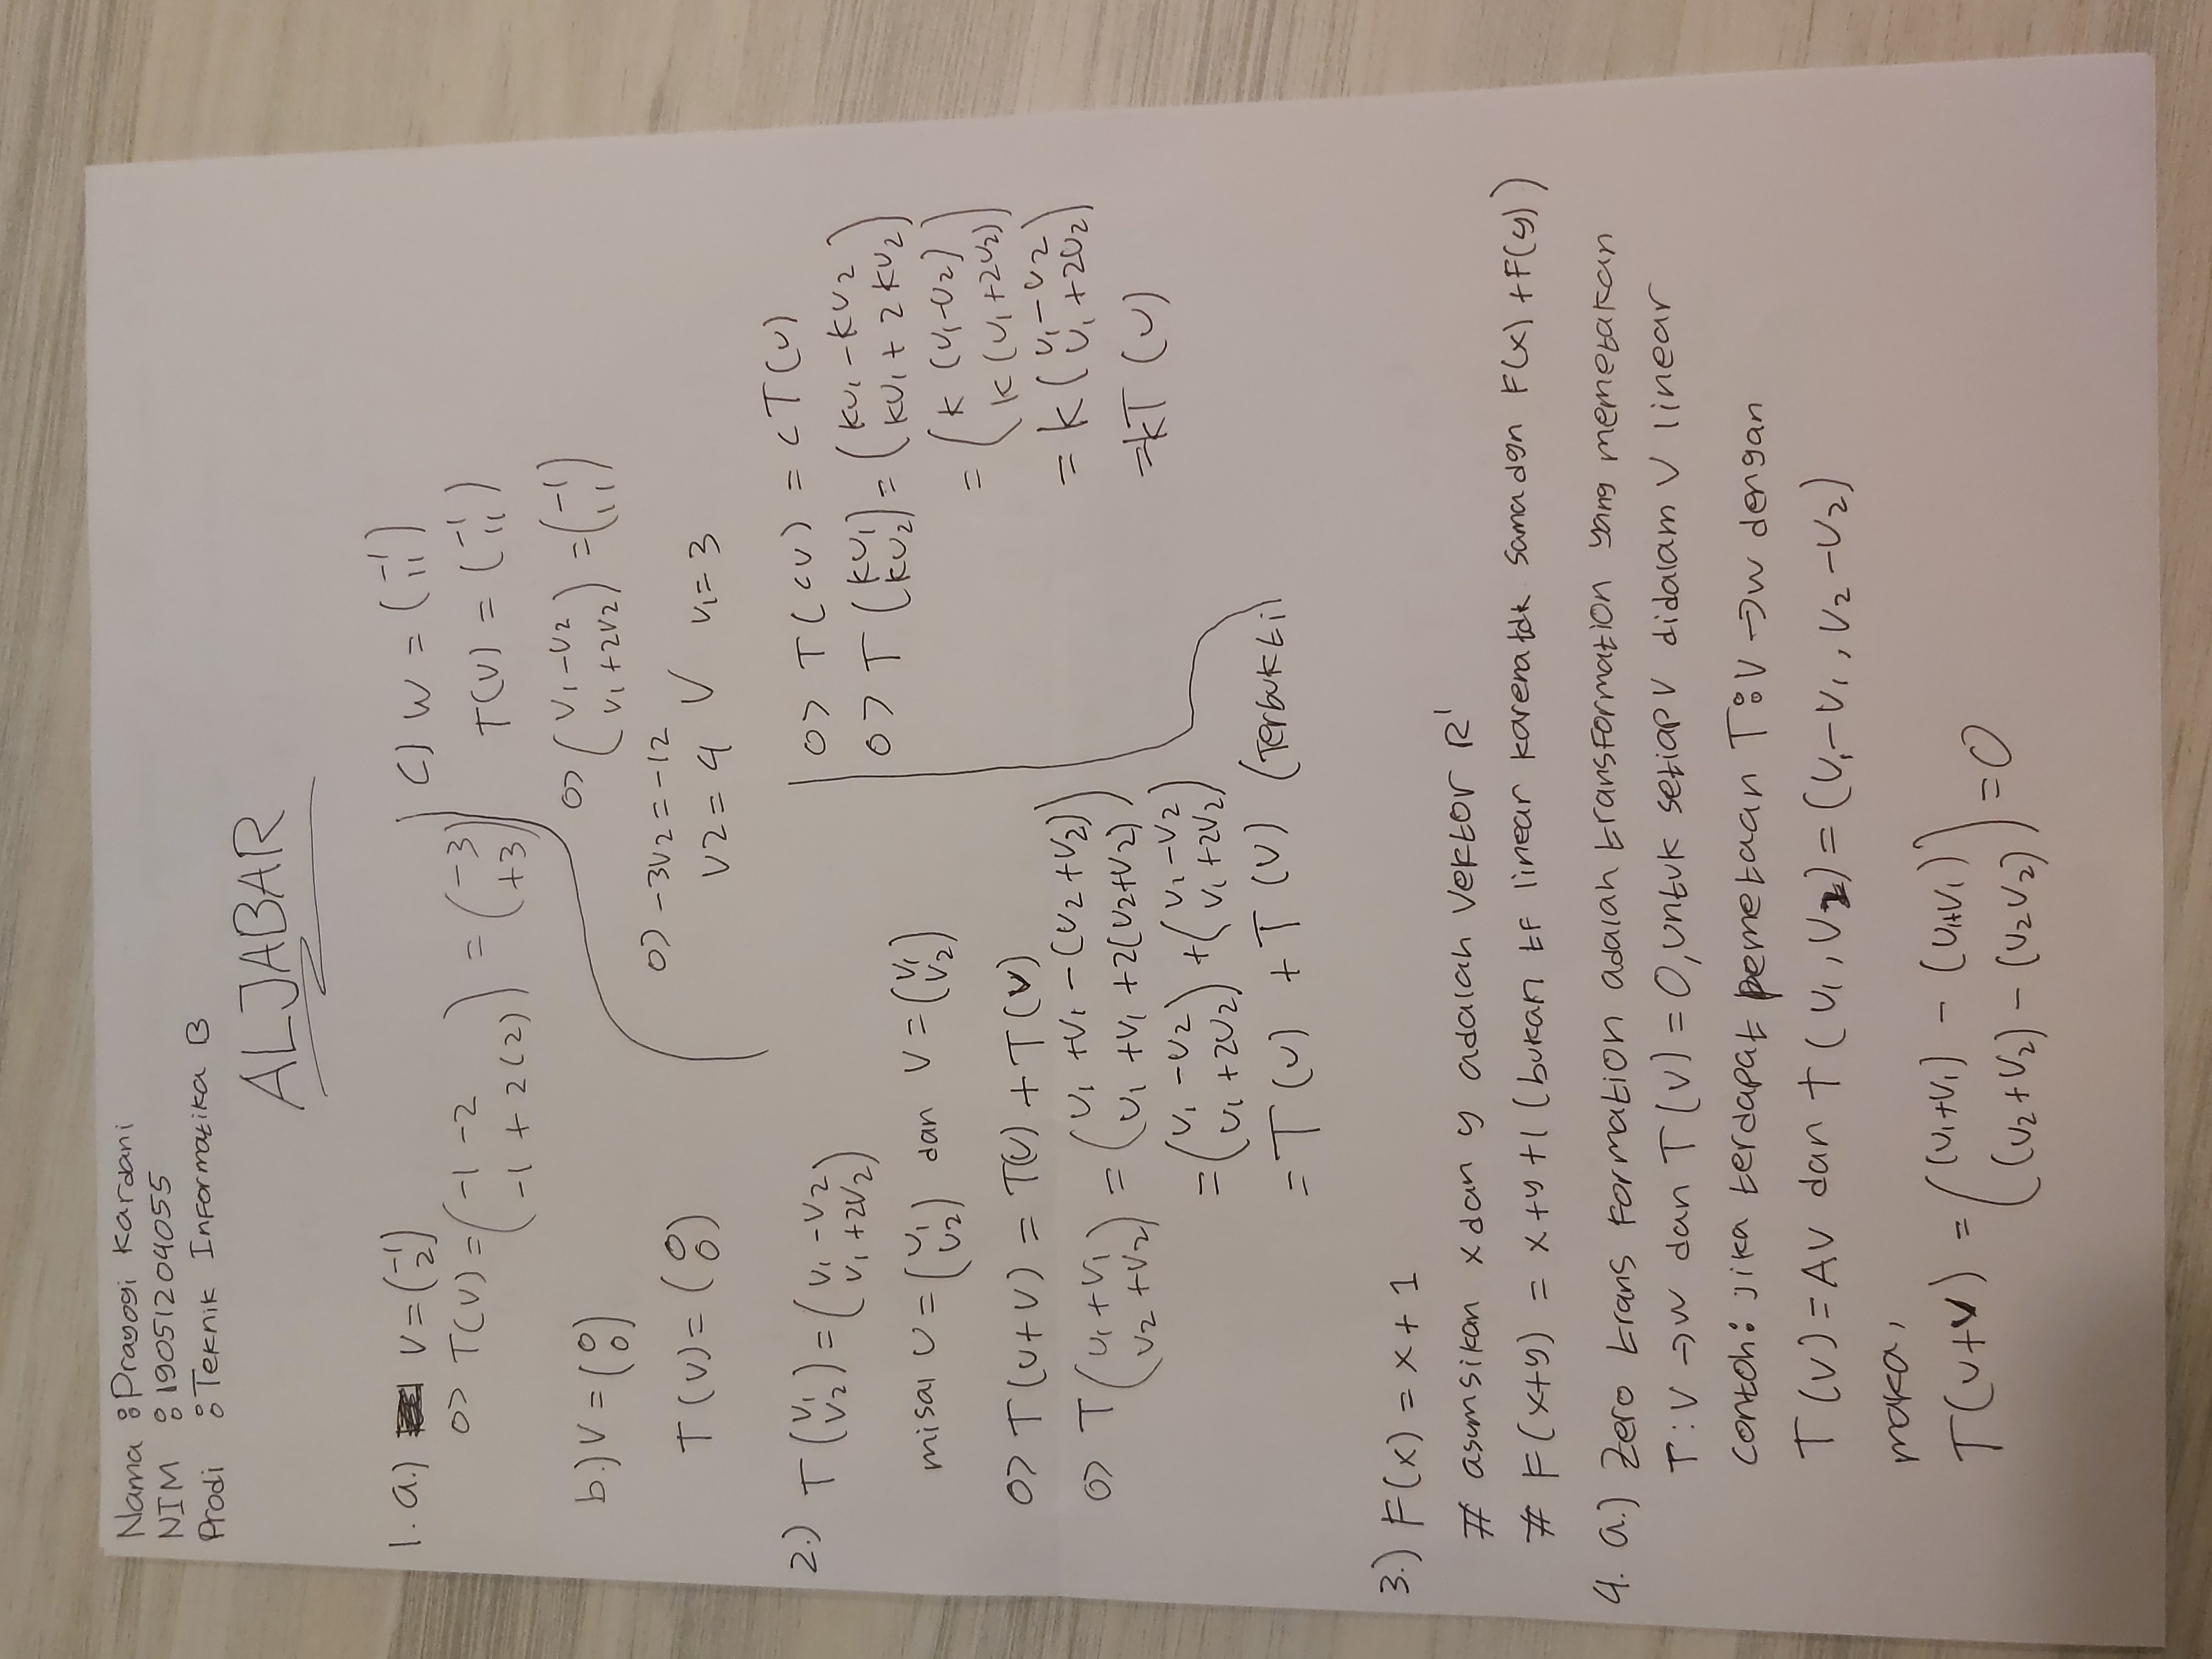 ALJABAR
Nama : Prayogi Kardani
NIM : 190512040 55
Prodi : Teknik Informatika B
1. a.) v = (-1 2)
o> T(v) = (-1 - 2 / -1 + 2(2)) = (-3 / +3)
b.) v = (0 / 0)
T(v) = (0 / 0)
c) w = (-1 / 11)
T(v) = (-1 / 11)
o> (v1 - v2 / v1 + 2v2) = (-1 / 11)
o> -3v2 = -12
v2 = 4 V v1 = 3
2.) T(v1 / v2) = (v1 - v2 / v1 + 2v2)
misal u = (v1 / v2) dan v = (v1 / v2)
o> T(u+v) = T(u) + T(v)
o> T(u1 + v1 / v2 + v2) = (u1 + v1 - (v2 + v2) / u1 + v1 + 2(v2 + v2))
= (v1 - v2 / v1 + 2v2) + (v1 - v2 / v1 + 2v2)
= T(u) + T(v) (Terbukti)
o> T(cu) = cT(u)
o> T(ku1 / ku2) = (ku1 - ku2 / ku1 + 2ku2)
= (k(u1 - u2) / k(u1 + 2u2))
= k(u1 - u2 / u1 + 2u2)
= kT(u)
3.) F(x) = x + 1
# asumsikan x dan y adalah vektor R¹
# F(x+y) = x + y + 1 (bukan tf linear karena tdk sama dgn F(x) + F(y))
4. a.) Zero transformation adalah transformation yang memetakan
T : V → W dan T(v) = 0, untuk setiap v didalam V linear
contoh : jika terdapat pemetaan T : V → W dengan
T(v) = Av dan T(v1, v2) = (v1 - v1, v2 - v2)
maka,
T(u+v) = ((u1 + v1) - (u1+v1) / (u2 + v2) - (u2 v2)) = 0